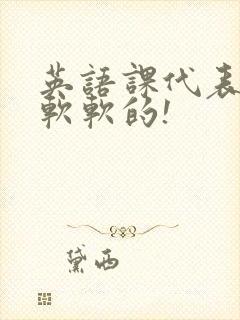 英語課代表
軟軟的!
黛西